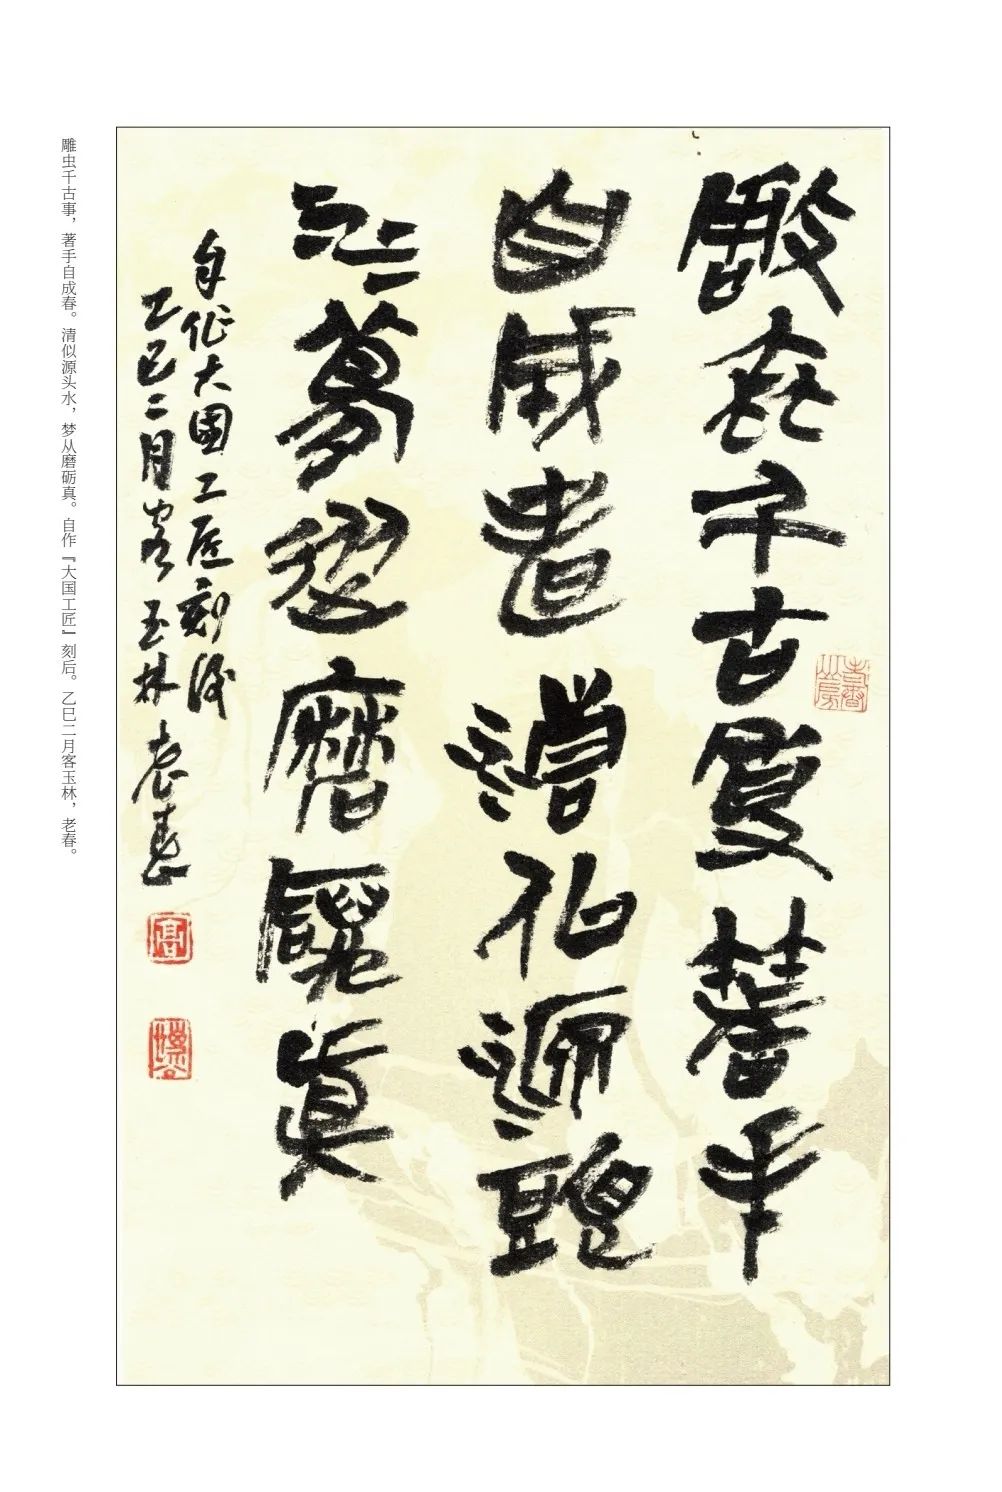 雕虫千古事著手
自成春清似源頭
水夢從磨礪真
自作大國工匠刻後
乙巳二月客玉林老春
雕虫千古事，著手自成春。清似源头水，梦从磨砺真。自作『大国工匠』刻后。乙巳二月客玉林，老春。